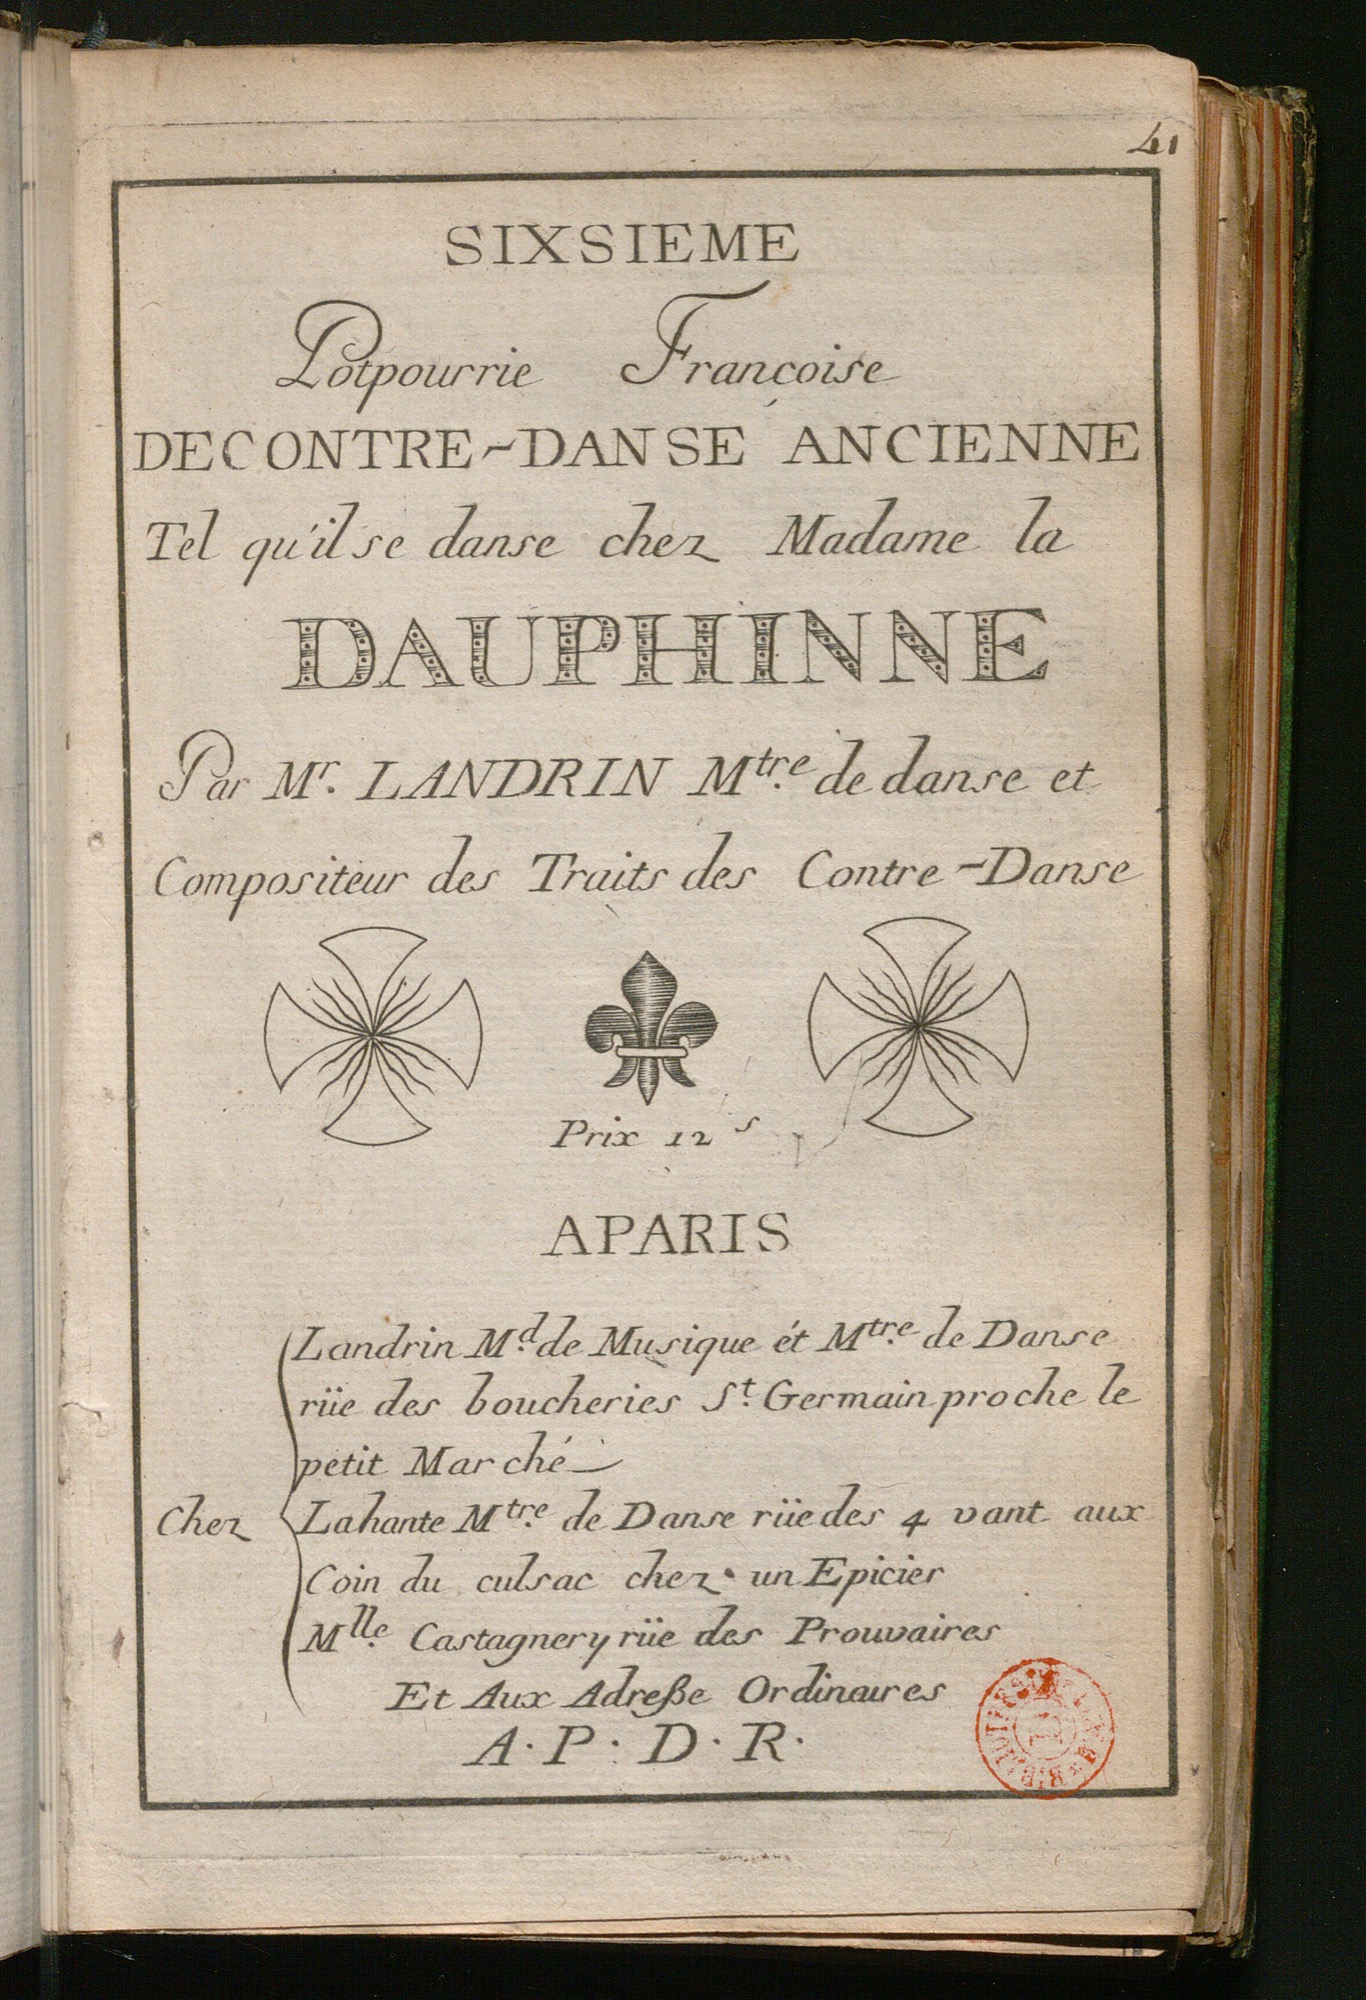 41
SIXSIEME
Potpourrie Françoise
DECONTRE-DANSE ANCIENNE
Tel qu'il se danse chez Madame la
DAUPHINNE
Par Mr. LANDRIN Mtre. de danse et
Compositeur des Traits des Contre-Danse
Prix 12 s
APARIS
Landrin Md. de Musique ét Mtre. de Danse
rüe des boucheries St. Germain proche le
petit Marché
Chez Lahante Mtre. de Danse rüe des 4 vant aux
Coin du culsac chez un Epicier
Mlle. Castagnery rüe des Prouvaires
Et Aux Adreße Ordinaires
A. P. D. R.